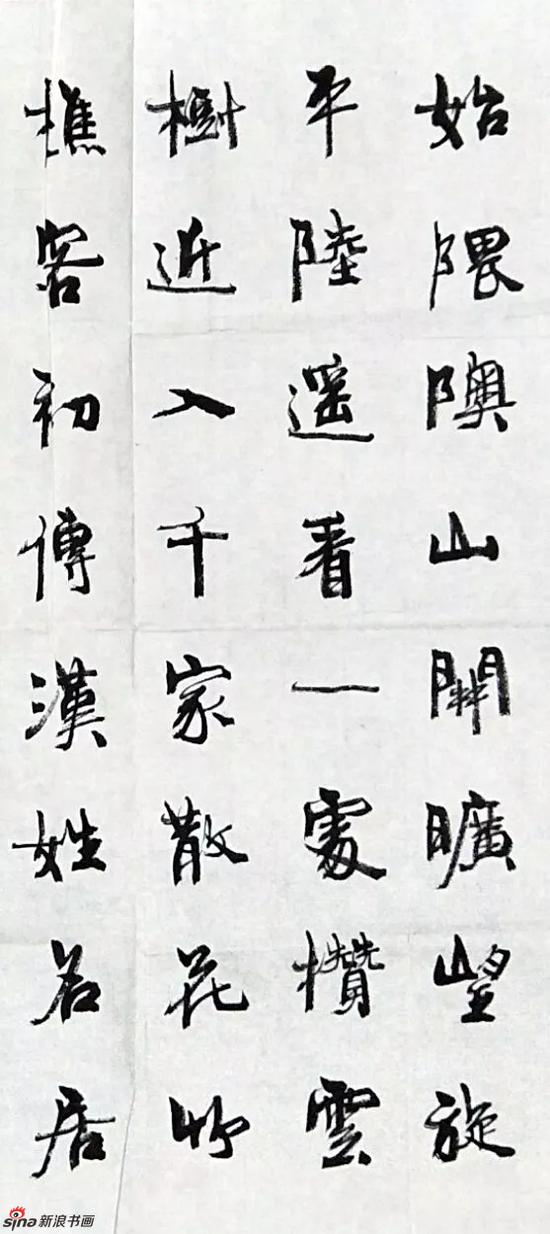 始隈隩山開曠望旋
平陸遥看一處攢雲
樹近入千家散花竹
樵客初傳漢姓名居
sina新浪书画